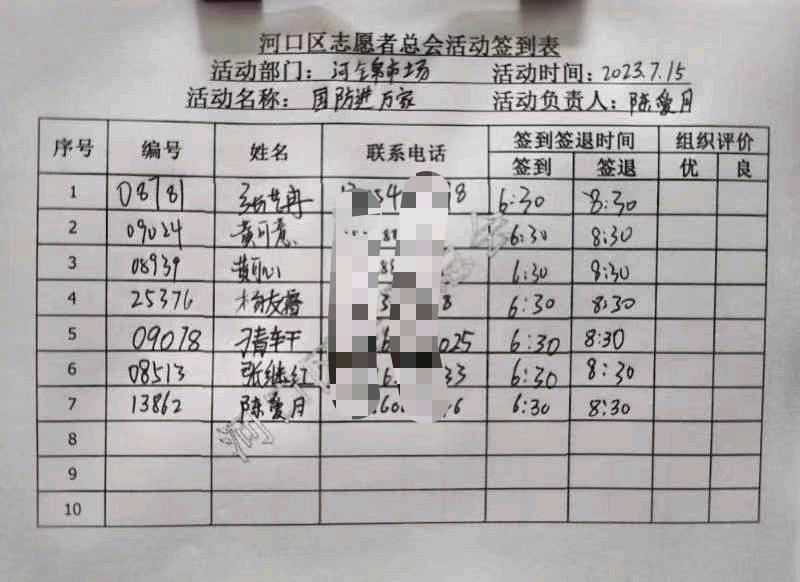 河口区志愿者总会活动签到表
活动部门：河金泉市场 活动时间：2023.7.15
活动名称：国防进万家 活动负责人：陈爱月
序号 编号 姓名 联系电话 签到签退时间 组织评价
签到 签退 优 良
1 08781 6:30 8:30
2 09024 黄可意 6:30 8:30
3 08939 黄可心 6:30 8:30
4 25376 6:30 8:30
5 09078 025 6:30 8:30
6 08513 张继红 33 6:30 8:30
7 13862 陈爱月 6:30 8:30
8
9
10